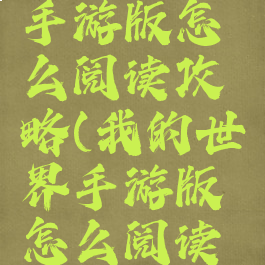 手游版怎
么阅读攻
略(我的世
界手游版
怎么阅读